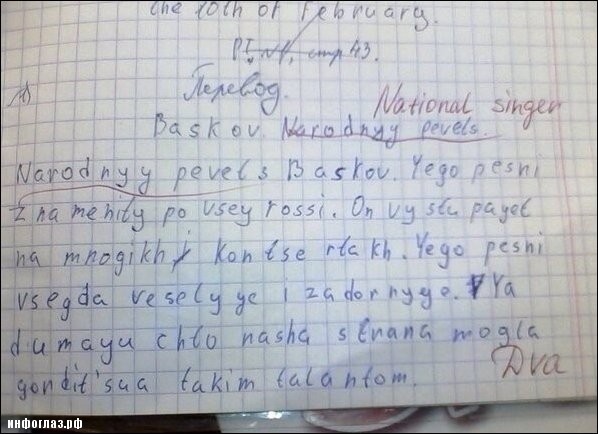 the 10th of February.
P.T., №1, стр 43.
Перевод.
National singer
Baskov. Narodnyy pevets.
Narodnyy pevets Baskov. Yego pesni
znamenity po vsey rossi. On vystupayet
na mnogikh kontsertakh. Yego pesni
vsegda veselyye i zadornyye. Ya
dumayu chto nasha strana mogla
gordit'sua takim talantom.
Dva
инфоглаз.рф